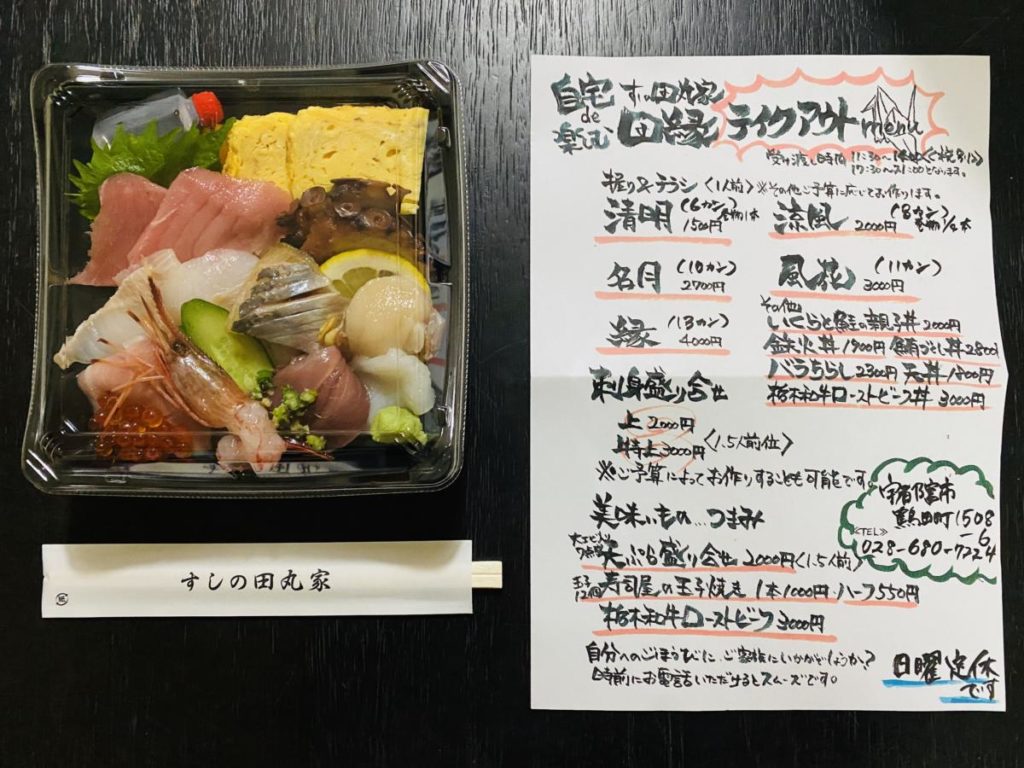 自宅de楽む
すしの田丸家
田縁
テイクアウトmenu
受け渡し時間 11:30〜
17:30〜21:00となります。
握り&チラシ〈1人前〉※その他ご予算に応じてお作ります。
清明 (6カン) 巻物1本 1500円
流風 (8カン) 巻物1/2本 2000円
名月 (10カン) 2700円
風花 (11カン) 3000円
縁 (13カン) 4000円
その他
いくらと鮭の親子丼 2000円
鉄火丼 1900円
丼 2800円
バラちらし 2300円 天丼 1800円
栃木和牛ローストビーフ丼 3000円
刺身盛り合せ
上 2000円
特上 3000円
〈1.5人前位〉
※ご予算によってお作りすることも可能です。
美味いもの…つまみ
天ぷら盛り合せ 2000円〈1.5人前〉
玉子12個 寿司屋の玉子焼き 1本1000円・ハーフ550円
栃木和牛ローストビーフ 3000円
自分へのごほうびに、ご家族にいかがでしょうか?
1時前にお電話いただけるとスムーズです。
宇都宮市
鶴田町1508
-6
<TEL>
028-680-7224
日曜定休
です
すしの田丸家